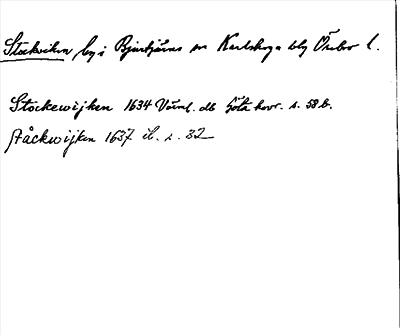 Stockviken by i Bjurtjärns sn Karlskoga blg Örebro l.
Stockewijken 1634 Värml. db Göta hovr. s. 58 b.
ståckwijken 1637 ib. s. 32